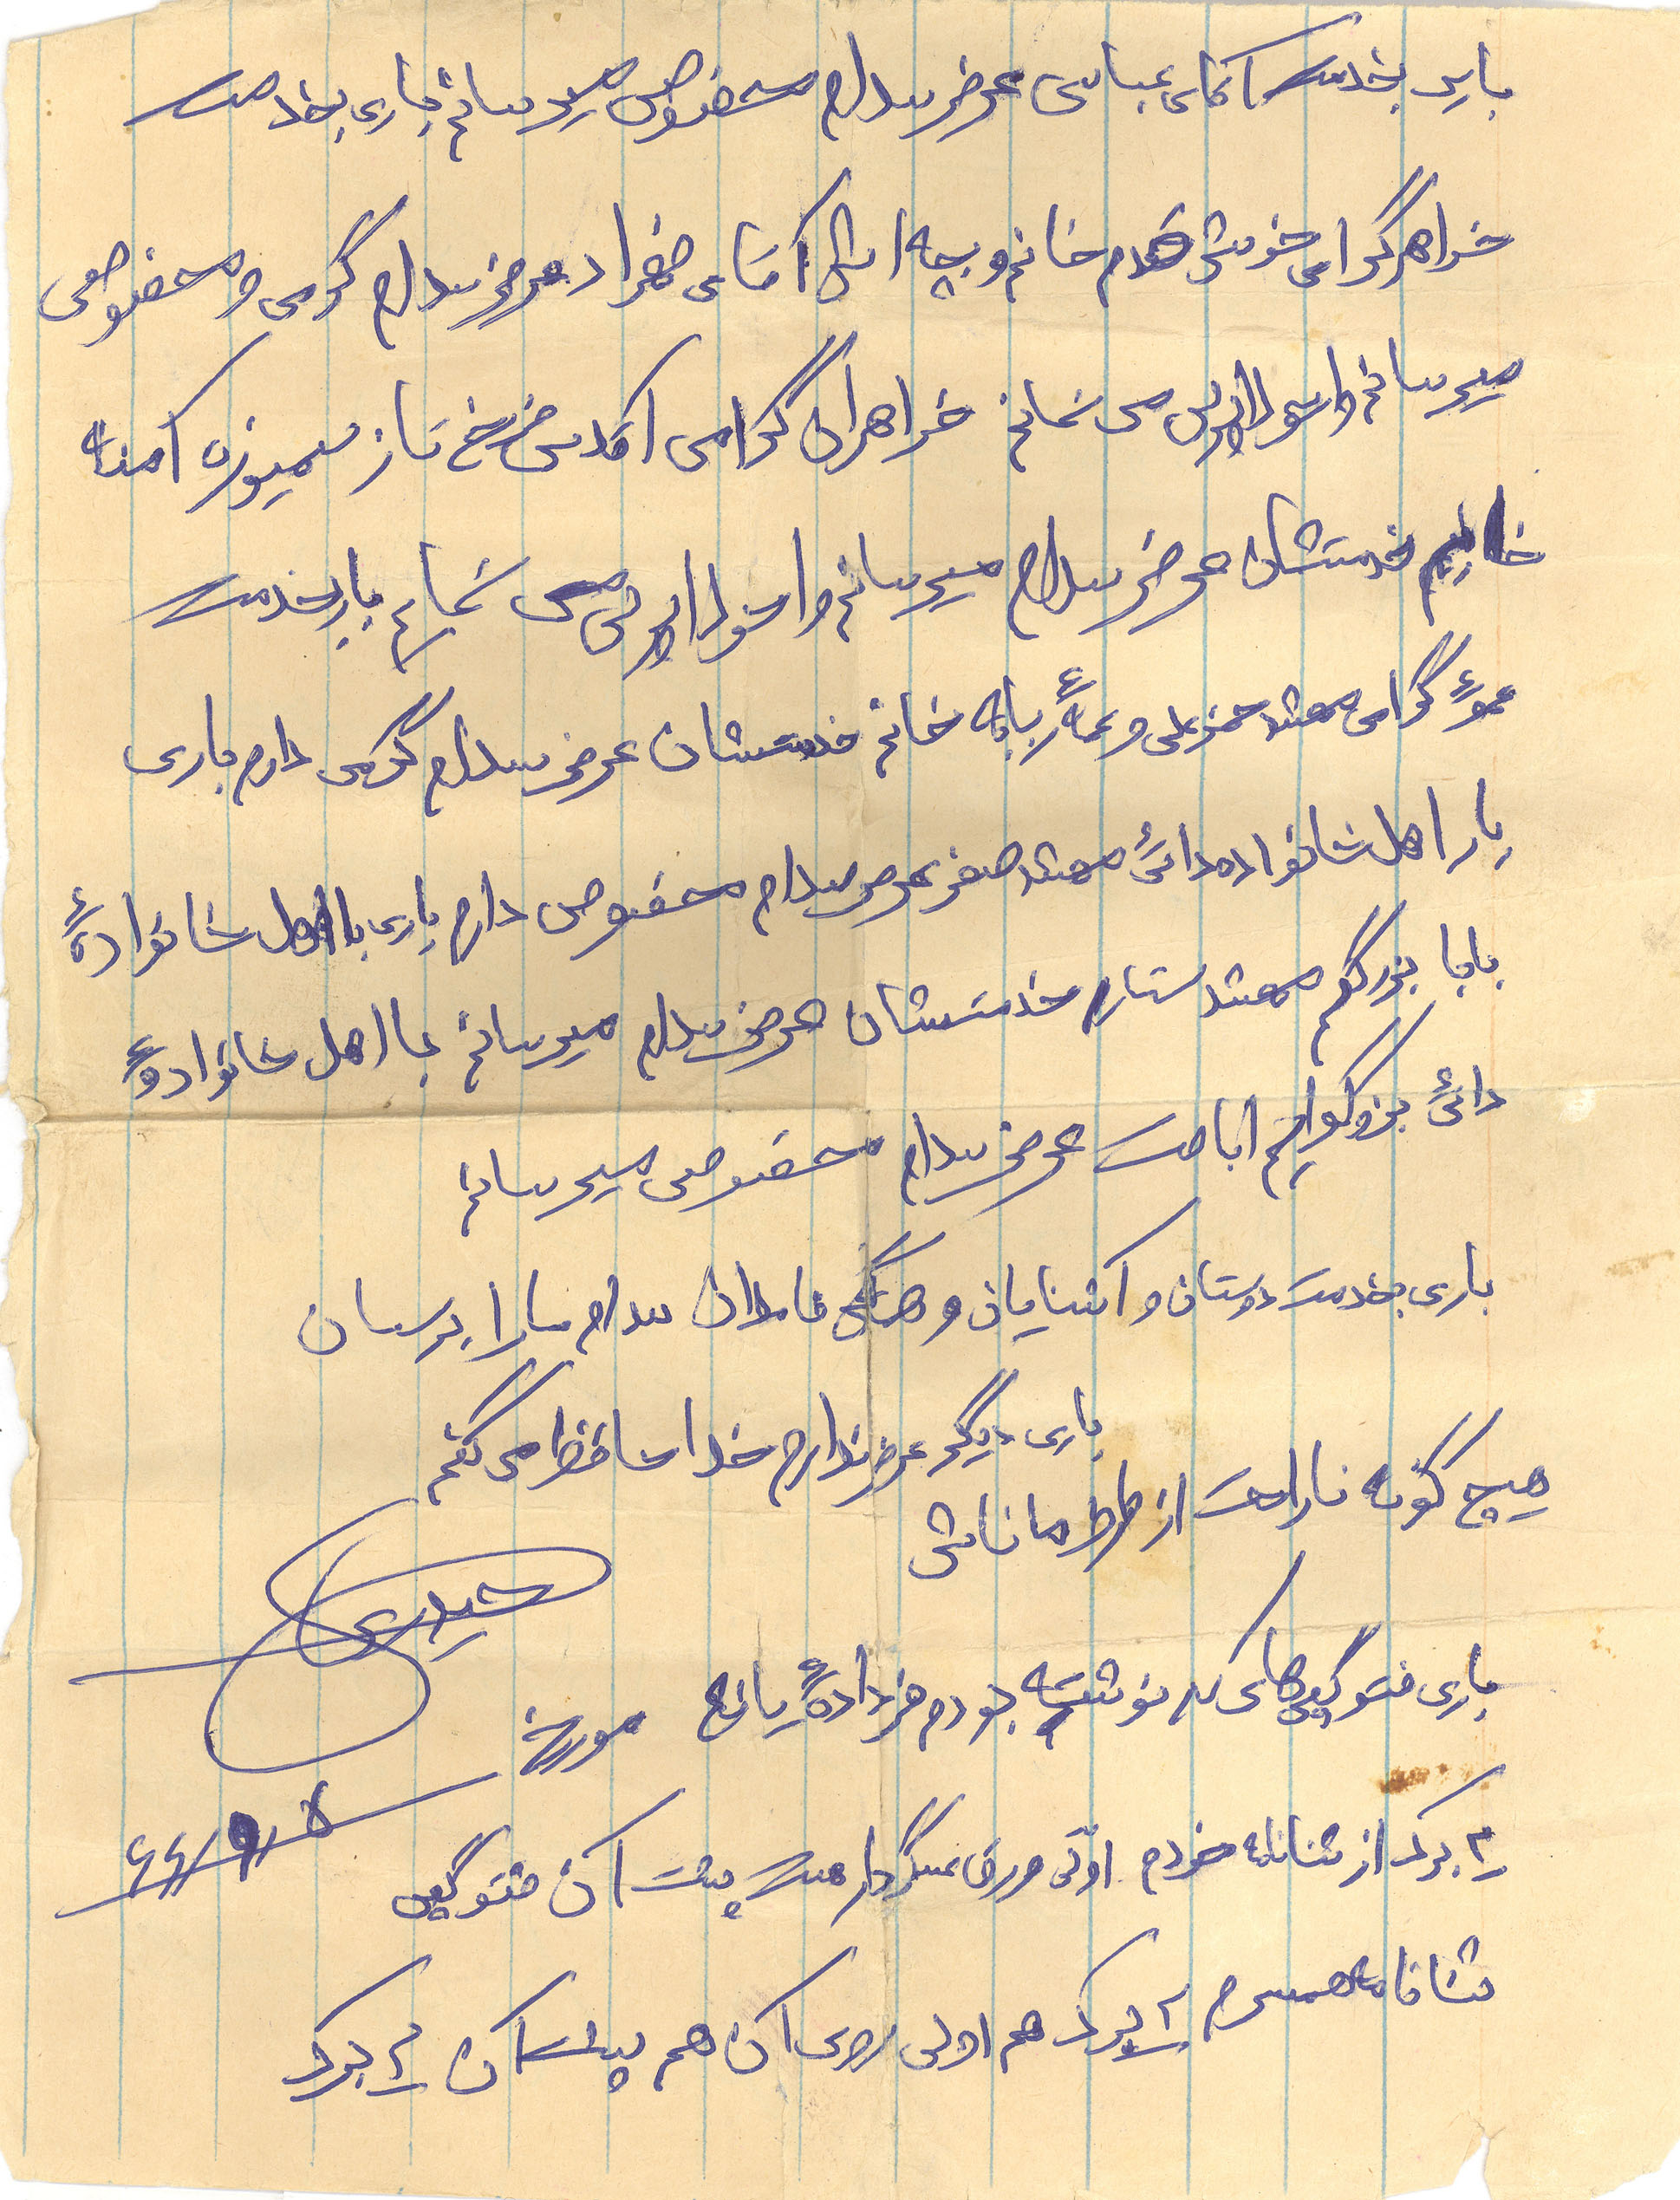 باری بخدمت آقای عباسی عرض سلام مخصوص میرسانم باری بخدمت
خواهر گرامی خوش قدم خانم و بچه اش آقای صفراد عرض سلام گرمی و مخصوصی
میرسانم و احوالپرسی می نمائم خواهران گرامی اقدس فرخ ناز آمنه
خدمتشان عرض سلام میرسانم و احوالپرسی می نمایم باری بخدمت
عموءً گرامی مشهد حمزعلی و عمهءً ربابه خانم خدمتشان عرض سلام گرمی دارم باری
با اهل خانواده دائیءً مشهد صفر عرض سلام مخصوص دارم باری با اهل خانوادهءً
بابا بزرگم مشهد ستار خدمتشان عرض سلام میرسانم با اهل خانوادهءً
دائیءً بزرگوارم اباصت عرض سلام مخصوصی میرسانم
باری بخدمت دوستان و آشنایان و همگی فامیلان سلام ما را برسان
باری دیگر عرض ندارم خدا حافظ می کنم
هیچ گونه ناراحت از طرف ما نباش
حیدری
باری فتوکپی های که نوشته بودم فرداده یانه مورخه
۲ برگ از شناسنامه خودم اولی ورق عسگر دار هست پشت آن فتوکپی
۶۶/۹/۵
شناسنامه همسرم ۲ برگ هم اولی روی آن هم پشت آن ۲ برگ